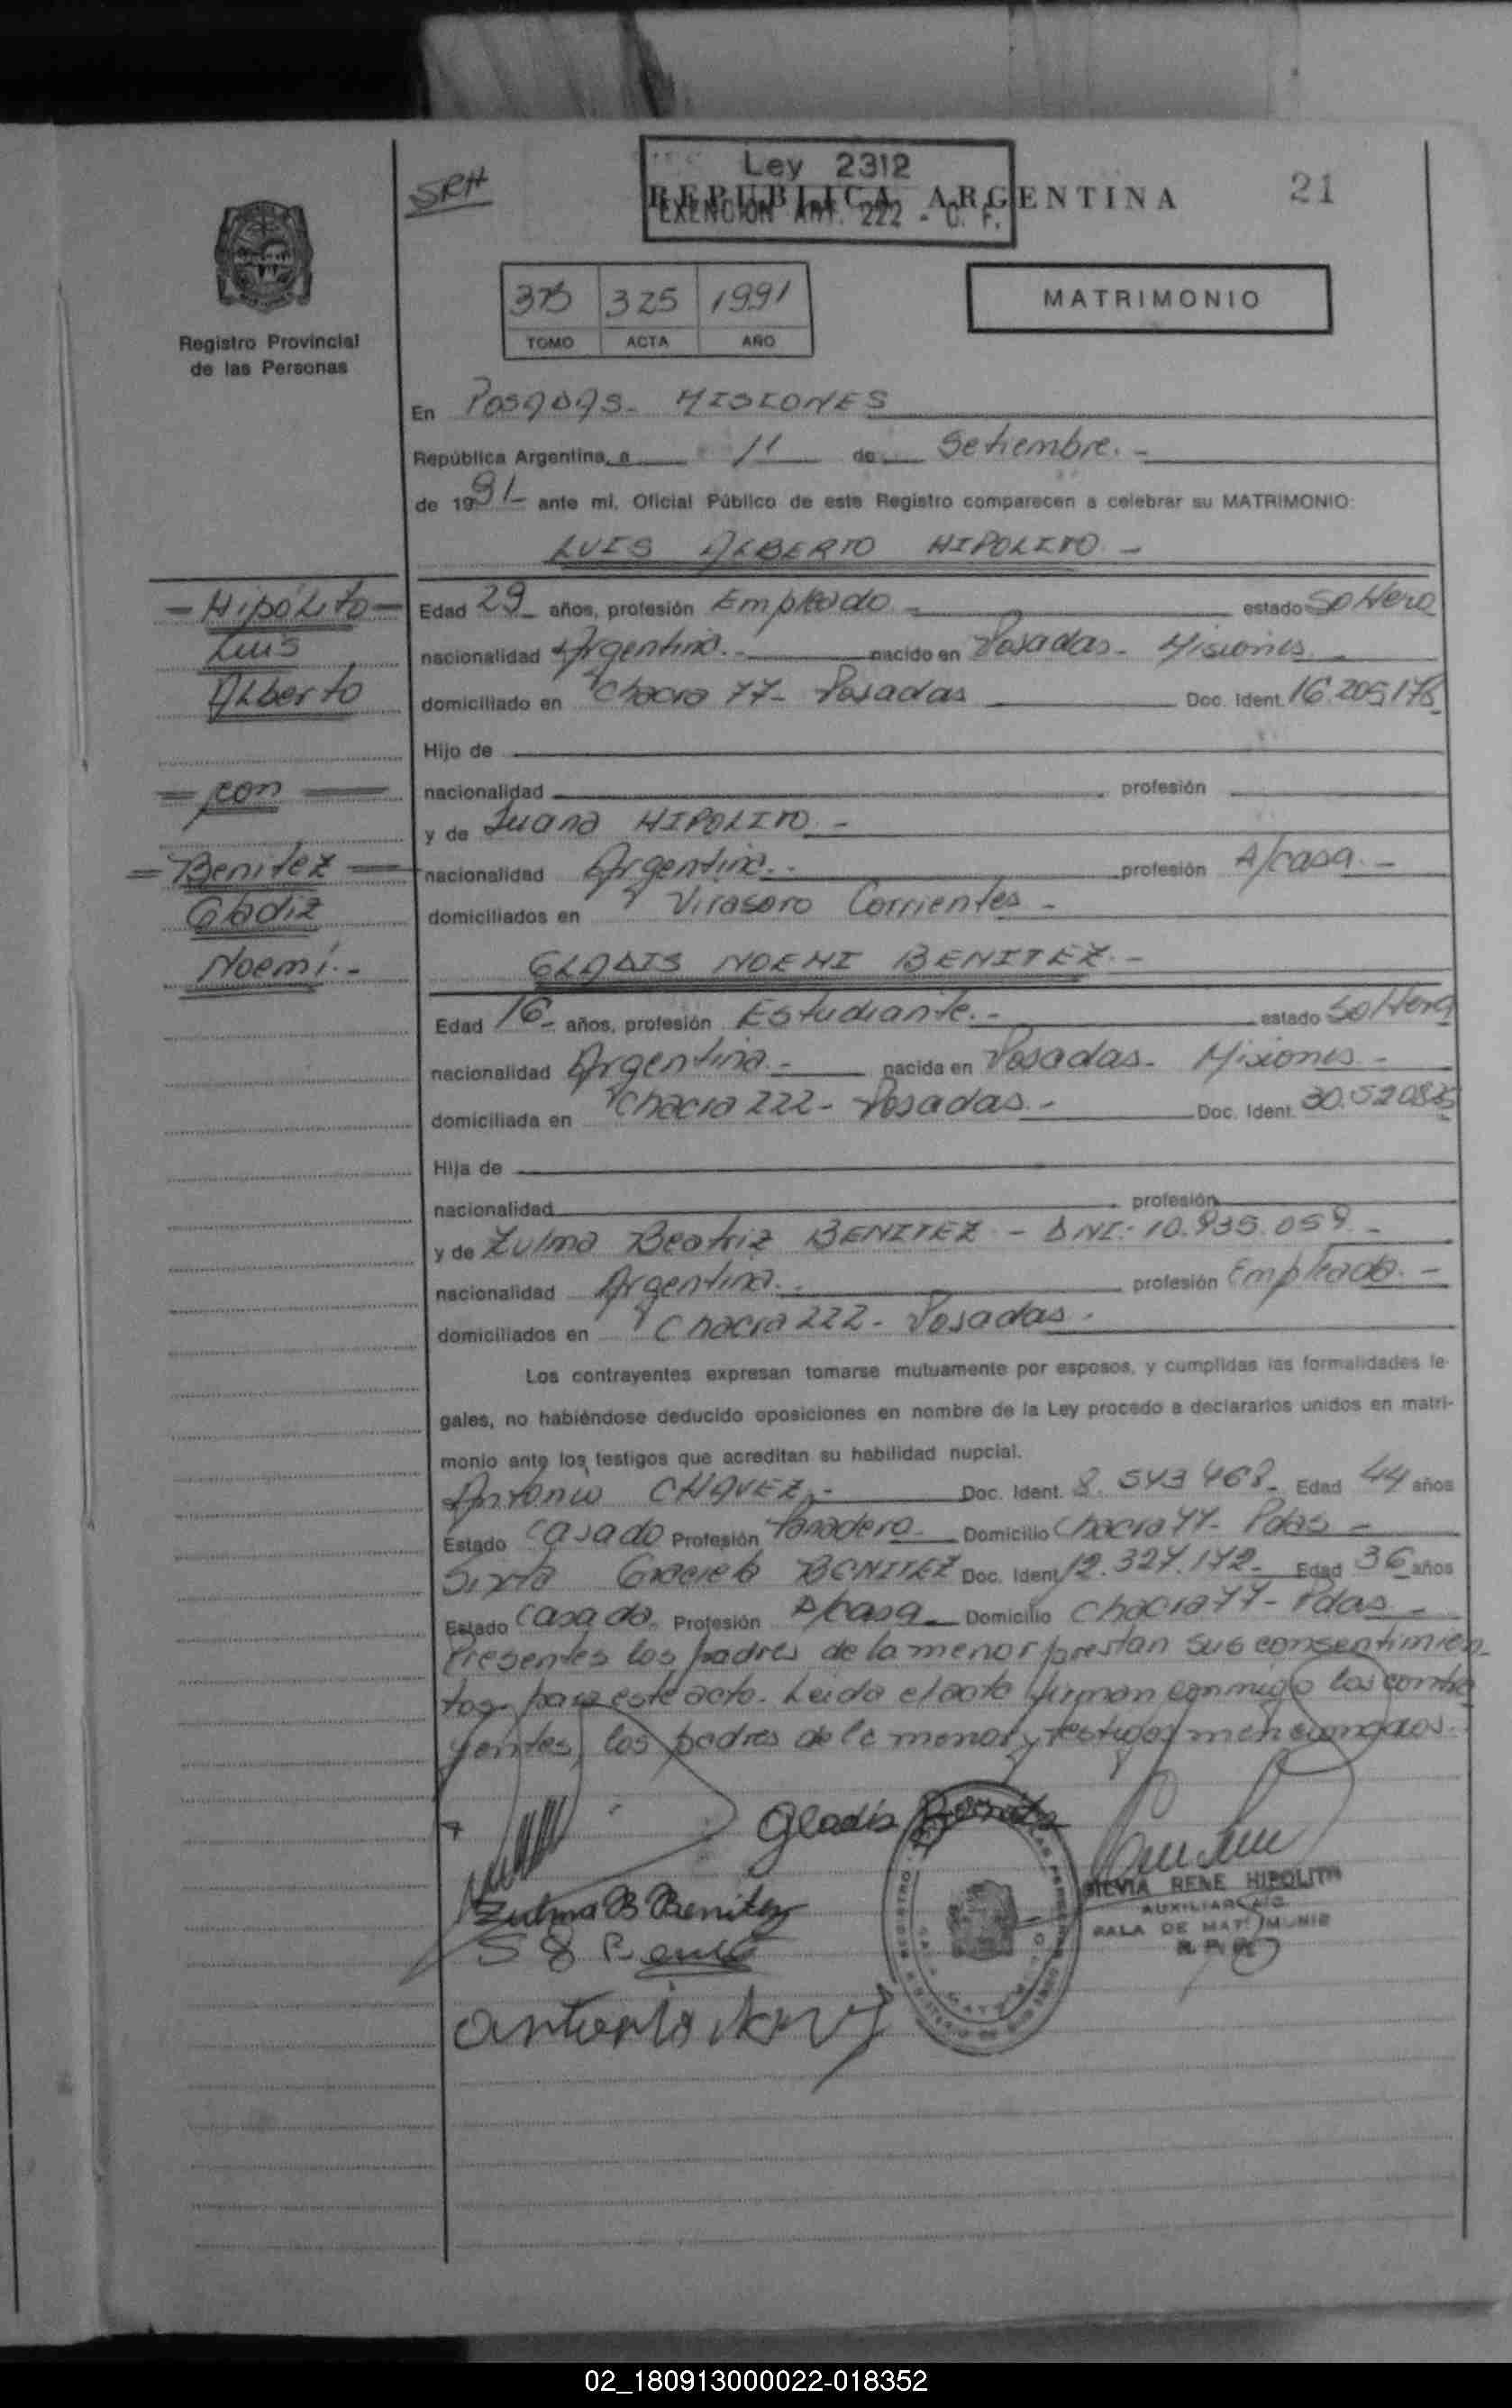 SRH
Ley 2312
REPUBLICA ARGENTINA
EXENCION ART. 222 - C. F.
21
Registro Provincial
de las Personas
375 325 1991
TOMO ACTA AÑO
MATRIMONIO
En POSADAS - MISIONES
República Argentina, a 11 de Setiembre. -
de 1991- ante mi, Oficial Público de este Registro comparecen a celebrar su MATRIMONIO:
LUIS ALBERTO HIPOLITO -
- Hipólito -
Luis
Alberto
= con =
= Benitez =
Gladiz
Noemí. -
Edad 29 años, profesión Empleado - estado Soltero
nacionalidad Argentina. - nacido en Posadas - Misiones
domiciliado en Chacra 77 - Posadas Doc. Ident. 16.205.178
Hijo de
nacionalidad profesión
y de Juana HIPOLITO -
nacionalidad Argentina. - profesión A/casa. -
domiciliados en Virasoro Corrientes -
GLADIS NOEMI BENITEZ. -
Edad 16 años, profesión Estudiante. - estado Soltera
nacionalidad Argentina - nacida en Posadas - Misiones -
domiciliada en Chacra 222 - Posadas. - Doc. Ident. 30.520.835
Hija de
nacionalidad profesión
y de Zulma Beatriz BENITEZ - DNI: 10.935.059 -
nacionalidad Argentina. - profesión Empleada. -
domiciliados en Chacra 222 - Posadas -
Los contrayentes expresan tomarse mutuamente por esposos, y cumplidas las formalidades le-
gales, no habiéndose deducido oposiciones en nombre de la Ley procedo a declararlos unidos en matri-
monio ante los testigos que acreditan su habilidad nupcial.
Antonio CHAVEZ - Doc. Ident. 8.543.468 - Edad 44 años
Estado Casado Profesión Panadero Domicilio Chacra 77 - Pdas -
Sixta Graciela BENITEZ Doc. Ident. 12.327.172 - Edad 36 años
Estado Casada Profesión A/casa Domicilio Chacra 77 - Pdas -
Presentes los padres de la menor prestan sus consentimien
tos para este acto. Leida el acta firman conmigo los contra
yentes, los padres de la menor y testigos mencionados.
Gladis Benitez
Zulma B Benitez
SILVIA RENE HIPOLITO
AUXILIAR
SALA DE MATRIMONIO
R. P. P.
02_180913000022-018352